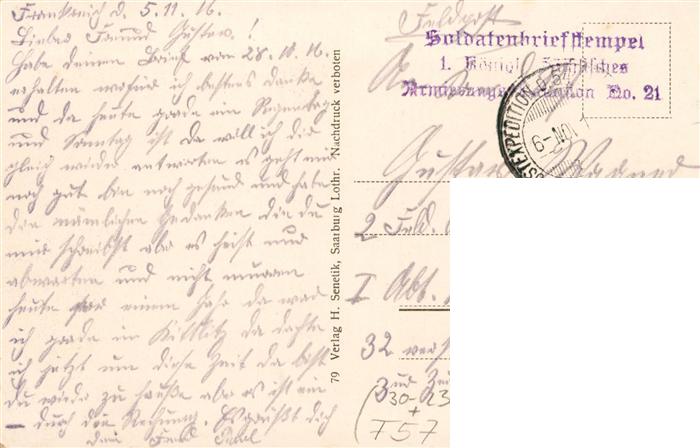 Frankreich d. 5.11.16.
Lieber Freund Gustav!
Habe deinen Brief vom 28.10.16
erhalten wofür ich bestens danke
und da heute grade ein Regentag
und Sonntag ist da will ich dir
gleich wieder antworten es geht mir
noch gut bin noch gesund und habe
den nämlichen Gedanken die du
mir schreibst aber es heist nur
abwarten und nicht murren
heute vor einem Jahr da war
ich grade in Kittlitz da dachte
ich jetzt um diese Zeit da bist
du wieder zu hause aber es ist ein
durch die Rechnung. Es grüßt dich
dein
79 Verlag H. Senetik, Saarburg Lothr. Nachdruck verboten
Feldpost
Soldatenbriefstempel
1. Königl. Sächsisches
Armierungs-Bataillon No. 21
POSTEXPEDITION
6-NOV
Gustav Wagner
2 Feld
I Abt.
32
330-
+
T57